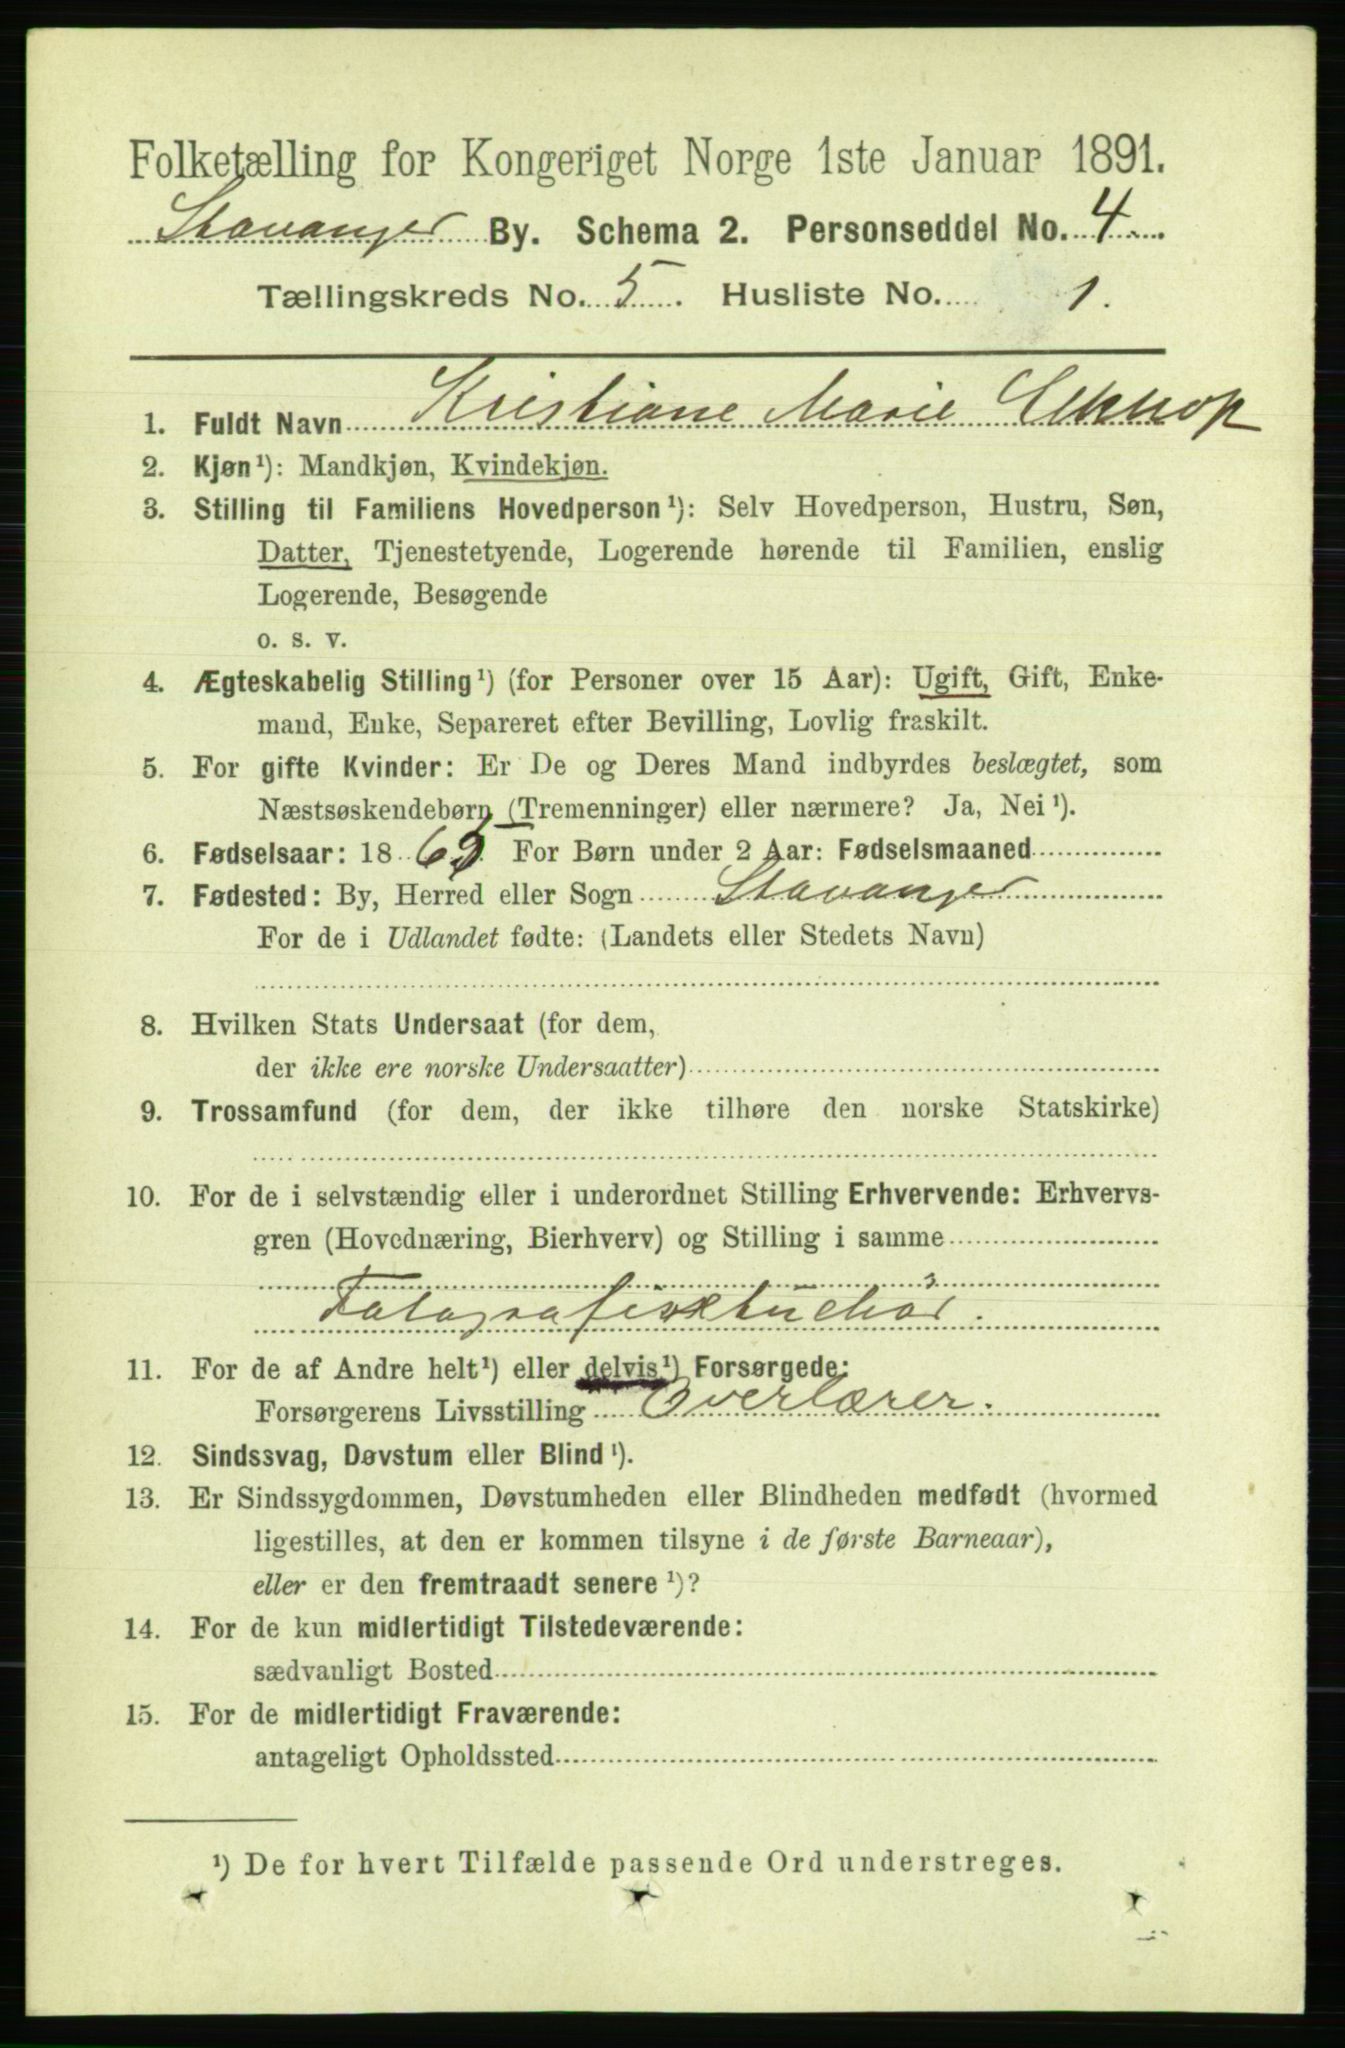 Folketælling for Kongeriget Norge 1ste Januar 1891.
Stavanger By. Schema 2. Personseddel No. 4
Tællingskreds No. 5. Husliste No. 1.
1. Fuldt Navn Kristiane Marie
2. Kjøn¹): Mandkjøn, Kvindekjøn.
3. Stilling til Familiens Hovedperson¹): Selv Hovedperson, Hustru, Søn,
Datter, Tjenestetyende, Logerende hørende til Familien, enslig
Logerende, Besøgende
o. s. v.
4. Ægteskabelig Stilling¹) (for Personer over 15 Aar): Ugift, Gift, Enke-
mand, Enke, Separeret efter Bevilling, Lovlig fraskilt.
5. For gifte Kvinder: Er De og Deres Mand indbyrdes beslægtet, som
Næstsøskendebørn (Tremenninger) eller nærmere? Ja, Nei¹).
6. Fødselsaar: 1865 For Børn under 2 Aar: Fødselsmaaned
7. Fødested: By, Herred eller Sogn Stavanger
For de i Udlandet fødte: (Landets eller Stedets Navn)
8. Hvilken Stats Undersaat (for dem,
der ikke ere norske Undersaatter)
9. Trossamfund (for dem, der ikke tilhøre den norske Statskirke)
10. For de i selvstændig eller i underordnet Stilling Erhvervende: Erhvervs-
gren (Hovednæring, Bierhverv) og Stilling i samme
11. For de af Andre helt¹) eller delvis¹) Forsørgede:
Forsørgerens Livsstilling Overlærer.
12. Sindssvag, Døvstum eller Blind¹).
13. Er Sindssygdommen, Døvstumheden eller Blindheden medfødt (hvormed
ligestilles, at den er kommen tilsyne i de første Barneaar),
eller er den fremtraadt senere¹)?
14. For de kun midlertidigt Tilstedeværende:
sædvanligt Bosted
15. For de midlertidigt Fraværende:
antageligt Opholdssted
¹) De for hvert Tilfælde passende Ord understreges.